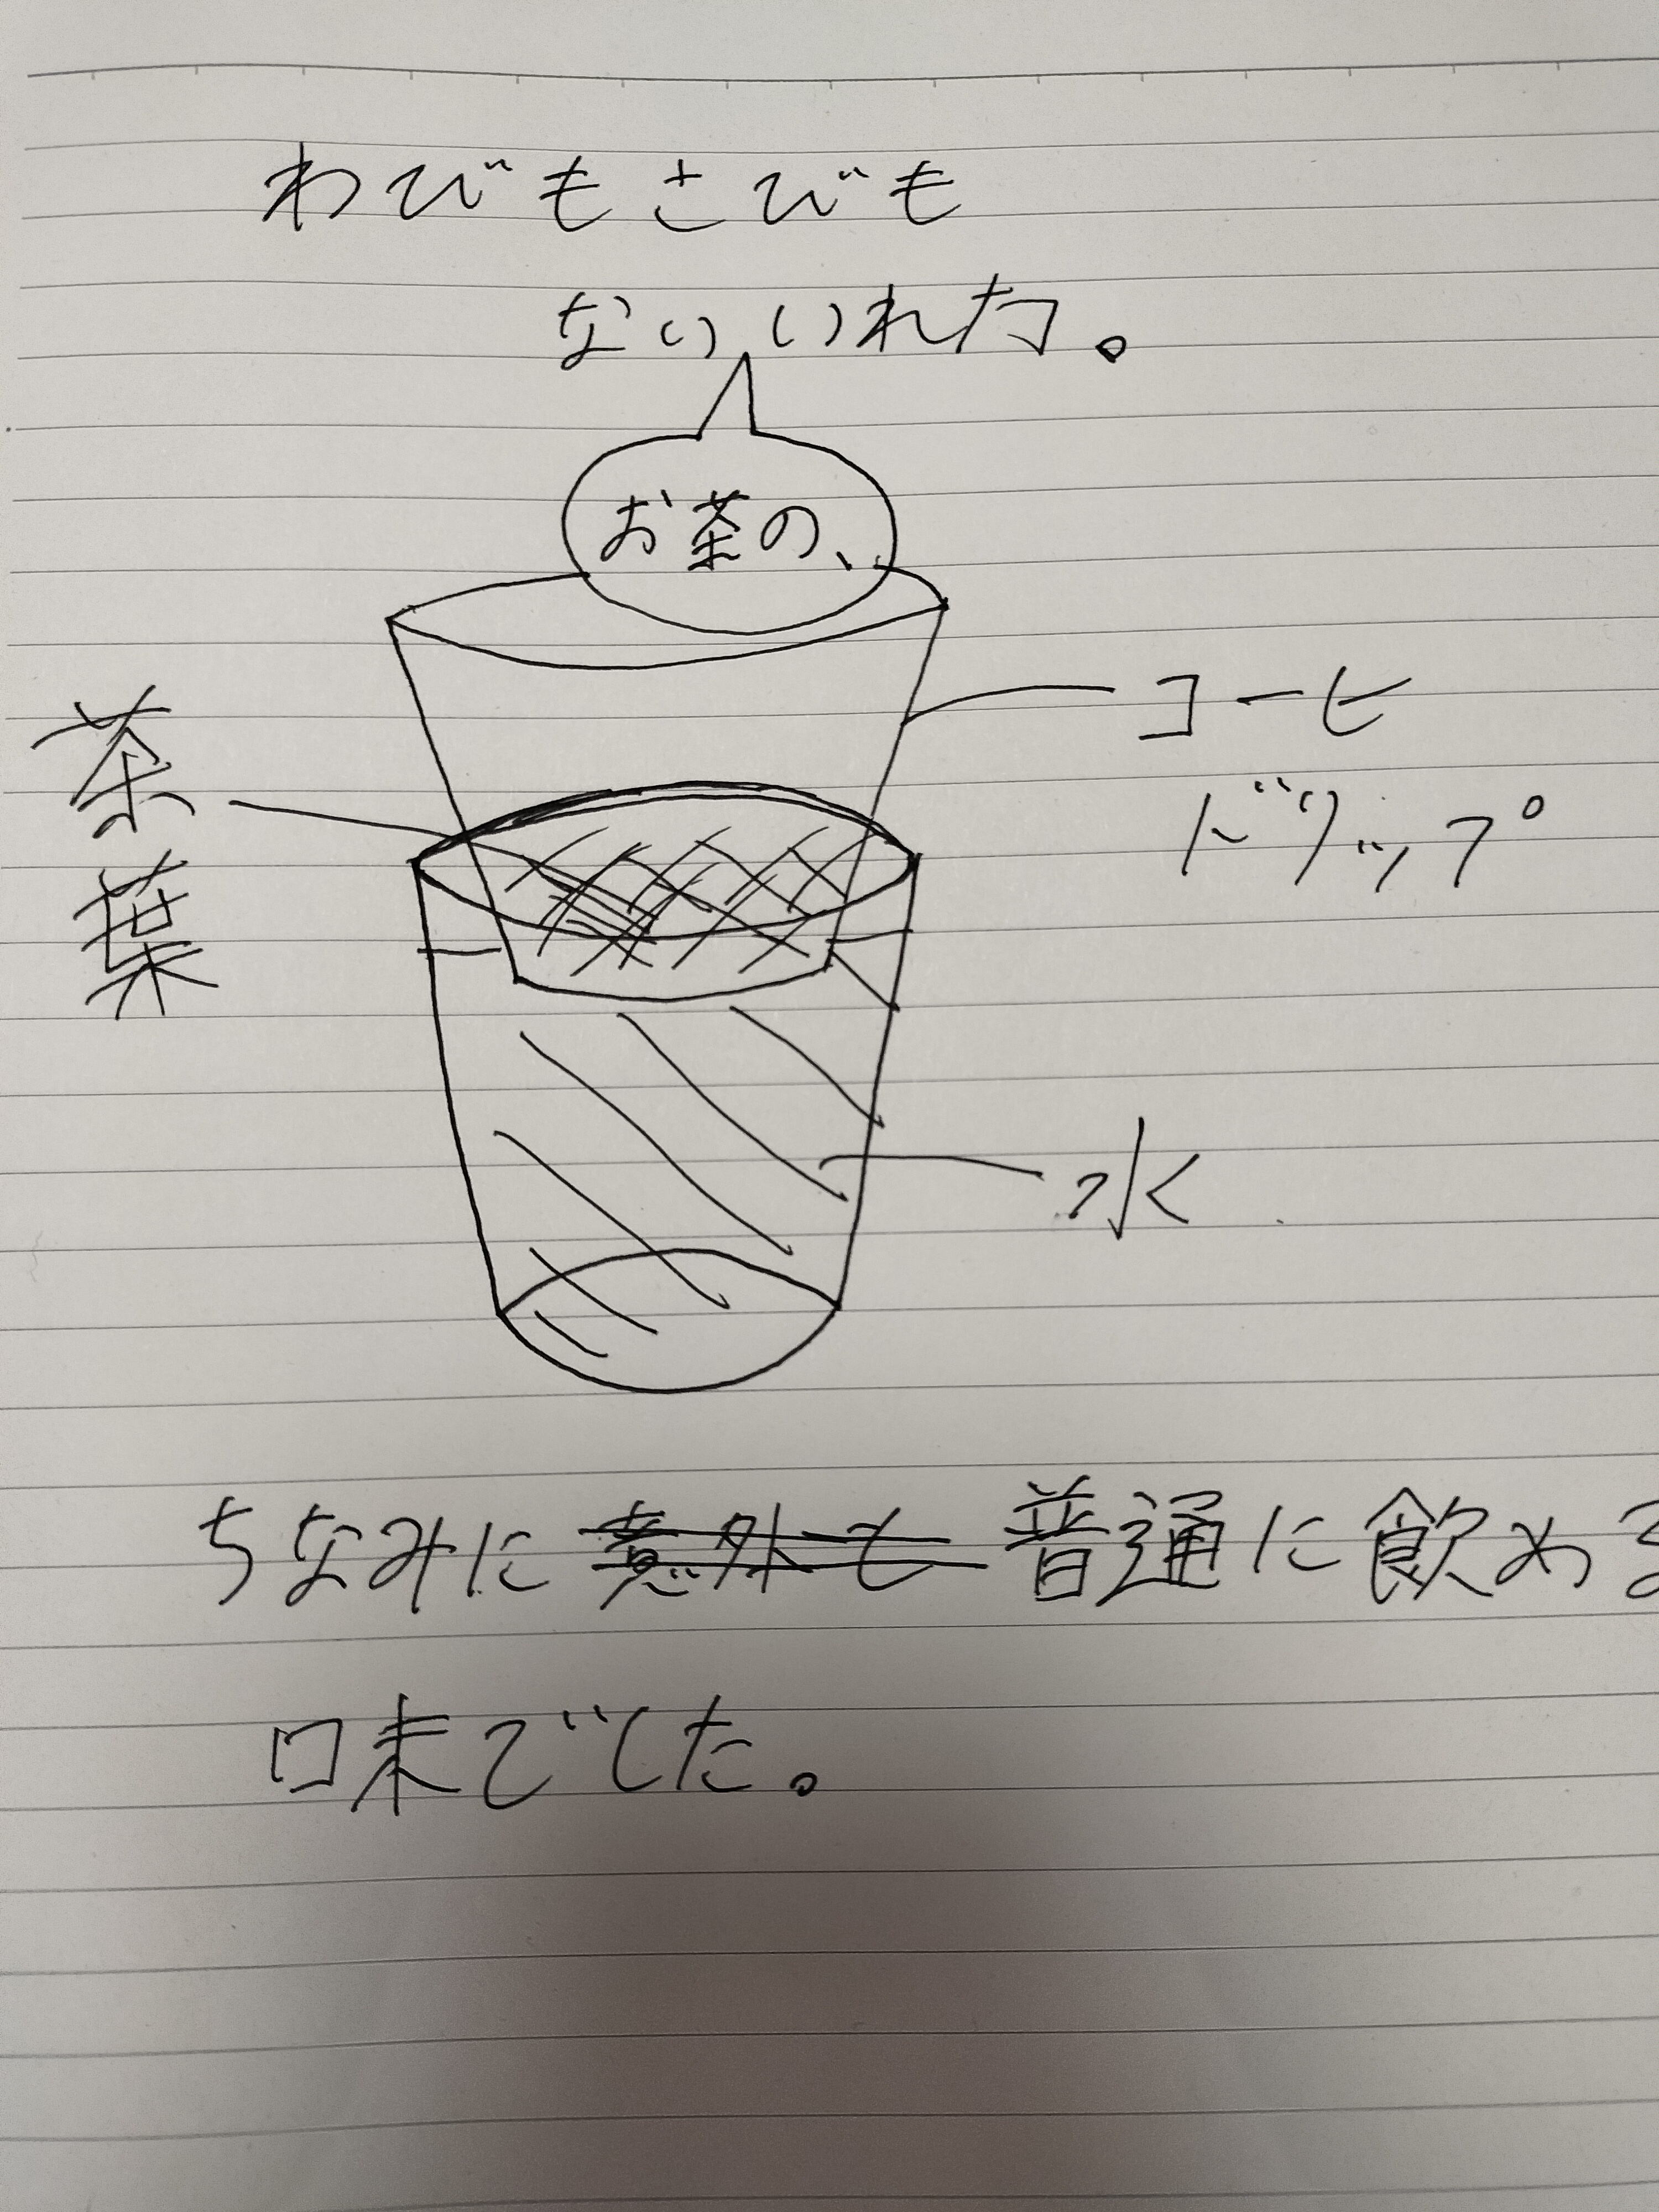 わびもさびも
ない いれ方。
お茶の、
コーヒ
ドリップ
茶葉
水
ちなみに意外も普通に飲める
味でした。